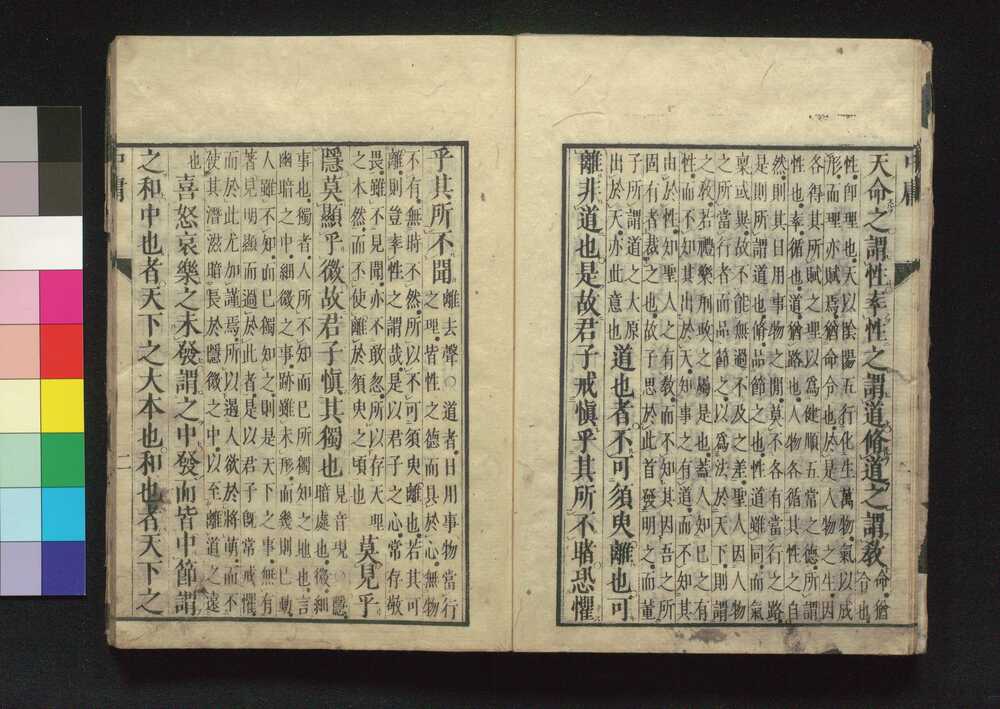 天命之謂性率性之謂道脩道之謂教命猶
令也
性卽理也天以陰陽五行化生萬物氣以成
形而理亦賦焉猶命令也於是人物之生因
各得其所賦之理以爲健順五常之德所謂
性也率循也道猶路也人物各循其性之自
然則其日用事物之閒莫不各有當行之路
是則所謂道也脩品節之也性道雖同而氣
稟或異故不能無過不及之差聖人因人物
之所當行者而品節之以爲法於天下則謂
之教若禮樂刑政之屬是也蓋人知己之有
性而不知其出於天知事之有道而不知其
由於性知聖人之有教而不知其因吾之所
固有者裁之也故子思於此首發明之而董
子所謂道之大原
出於天亦此意也道也者不可須臾離也可
離非道也是故君子戒愼乎其所不睹恐懼
乎其所不聞離去聲○道者日用事物當行
之理皆性之德而具於心無物
不有無時不然所以不可須臾離也若其可
離則豈率性之謂哉是以君子之心常存敬
畏雖不見聞亦不敢忽所以存天理
之本然而不使離於須臾之頃也莫見乎
隱莫顯乎微故君子愼其獨也見音現○隱
暗處也微細
事也獨者人所不知而己所獨知之地也言
幽暗之中細微之事跡雖未形而幾則已動
人雖不知而己獨知之則是天下之事無有
著見明顯而過於此者是以君子旣常戒懼
而於此尤加謹焉所以遏人欲於將萌而不
使其潛滋暗長於隱微之中以至離道之遠
也
喜怒哀樂之未發謂之中發而皆中節謂
之和中也者天下之大本也和也者天下之
中庸
二